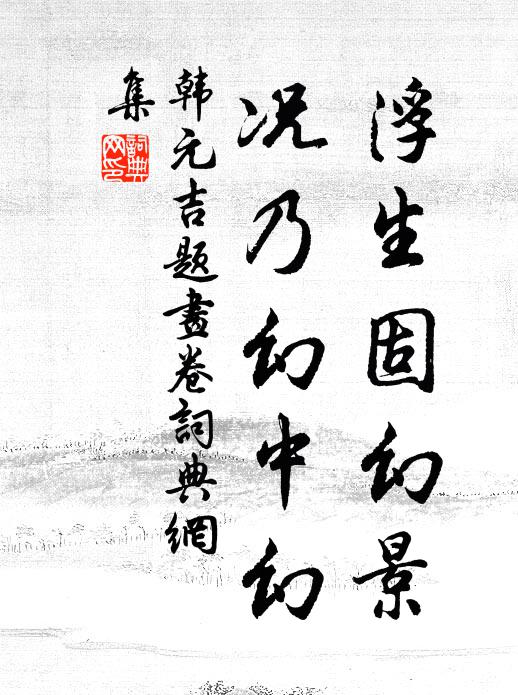 浮生固幻景
况乃幻中幻
韩元吉题畫卷詞典網
集
詞典
网印